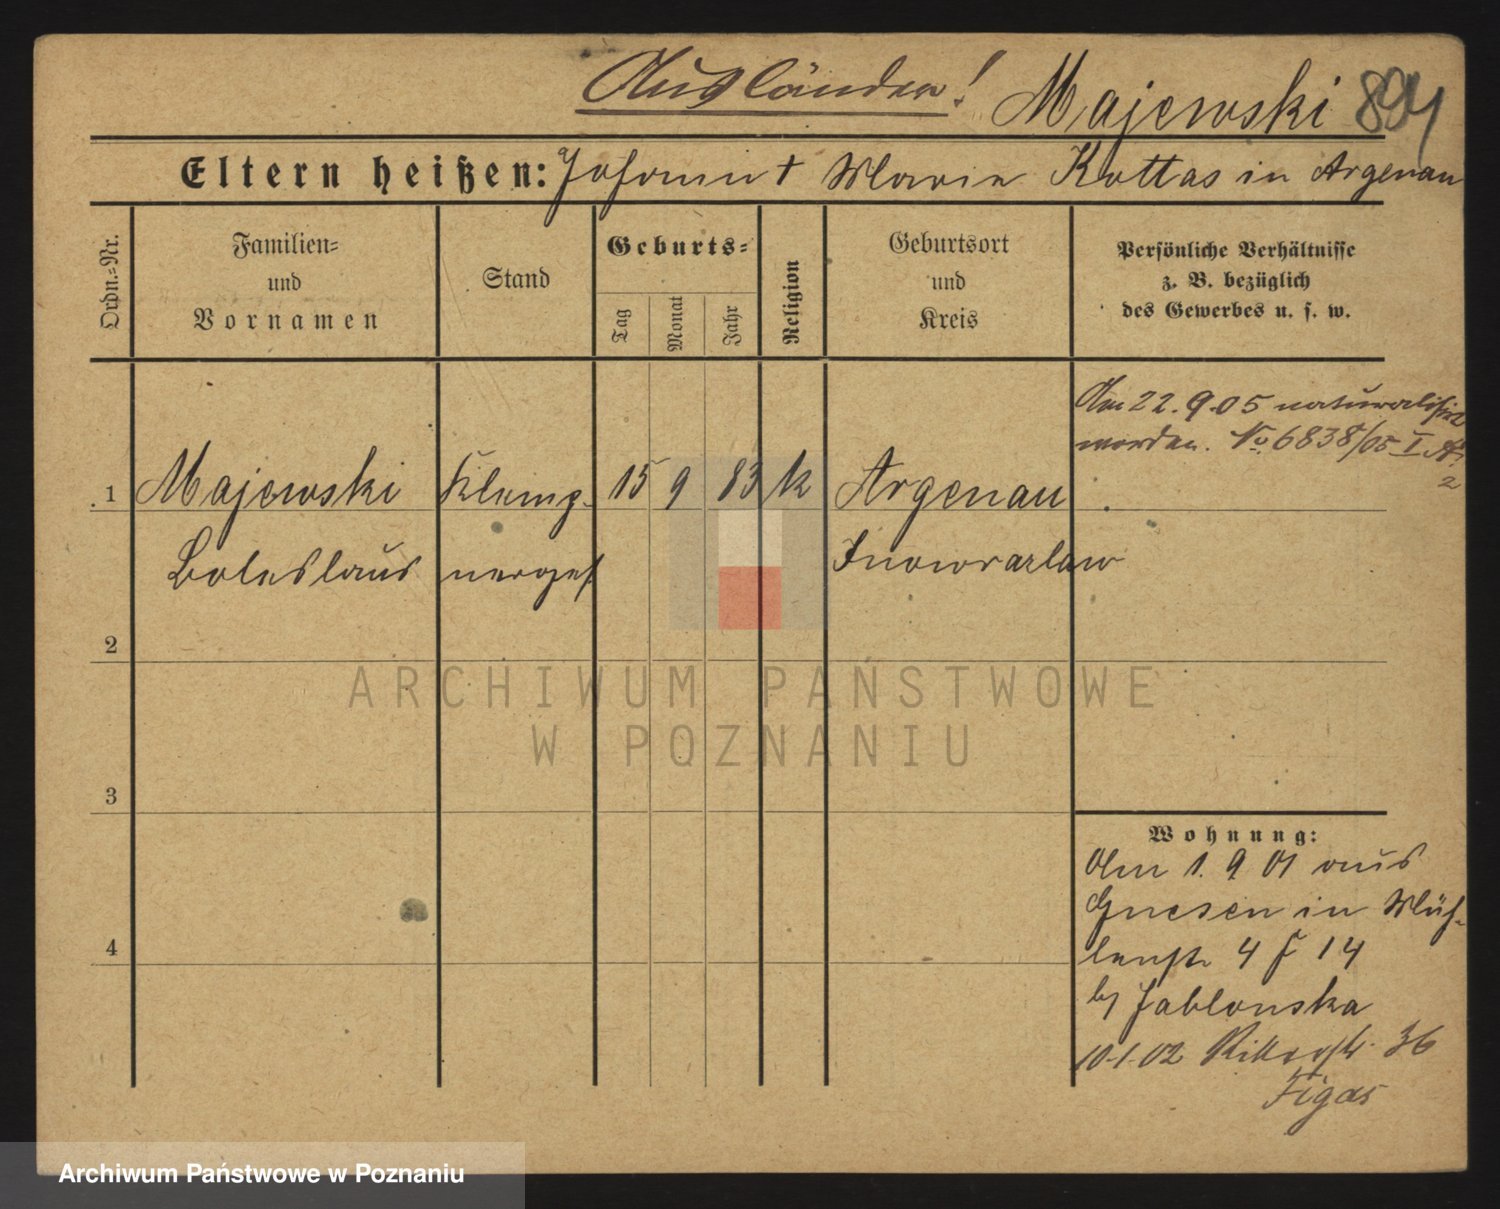 Ausländer! Majewski 894
Eltern heißen: Johann † Marie Kottas in Argenau
Ordn.=Nr.
Familien=
und
Vornamen
Stand
Geburts=
Tag
Monat
Jahr
Religion
Geburtsort
und
Kreis
Persönliche Verhältnisse
z. B. bezüglich
des Gewerbes u. s. w.
Am 22.9.05 naturalisirt
worden. No 6838/05 I A
2
1 Majewski Klemp- 15 9 83 k Argenau
Boleslaus nerges Inowrazlaw
2
3
4
Wohnung:
Am 1. 9 01 aus
Gnesen in Müh-
lenstr 4 14
by Jablonska
10.1.02 Ritterstr. 36
Figas
ARCHIWUM PAŃSTWOWE
W POZNANIU
Archiwum Państwowe w Poznaniu